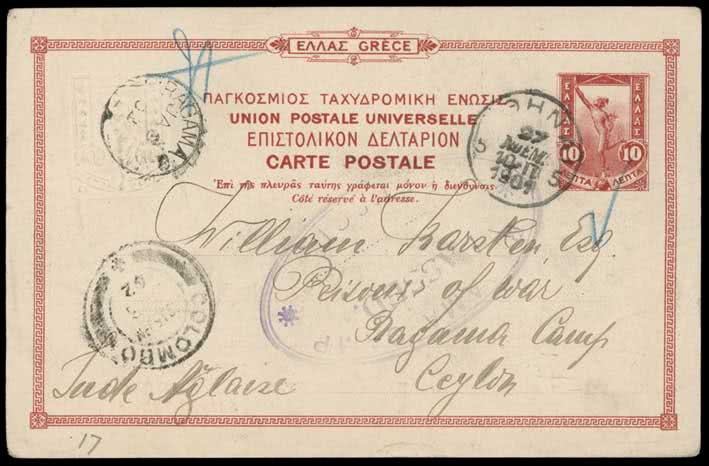 ΕΛΛΑΣ GRÈCE
ΠΑΓΚΟΣΜΙΟΣ ΤΑΧΥΔΡΟΜΙΚΗ ΕΝΩΣΙΣ
UNION POSTALE UNIVERSELLE
ΕΠΙΣΤΟΛΙΚΟΝ ΔΕΛΤΑΡΙΟΝ
CARTE POSTALE
Ἐπὶ τῆς πλευρᾶς ταύτης γράφεται μόνον ἡ διεύθυνσις.
Côté réservé à l'adresse.
ΕΛΛΑΣ
ΕΛΛΑΣ
10 10
ΛΕΠΤΑ ΛΕΠΤΑ
27
1901
5 5
RAGAMA
William Karsten Esq.
Prisoners of war
Ragama Camp
Ceylon
Inde Anglaise
COLOMBO
17